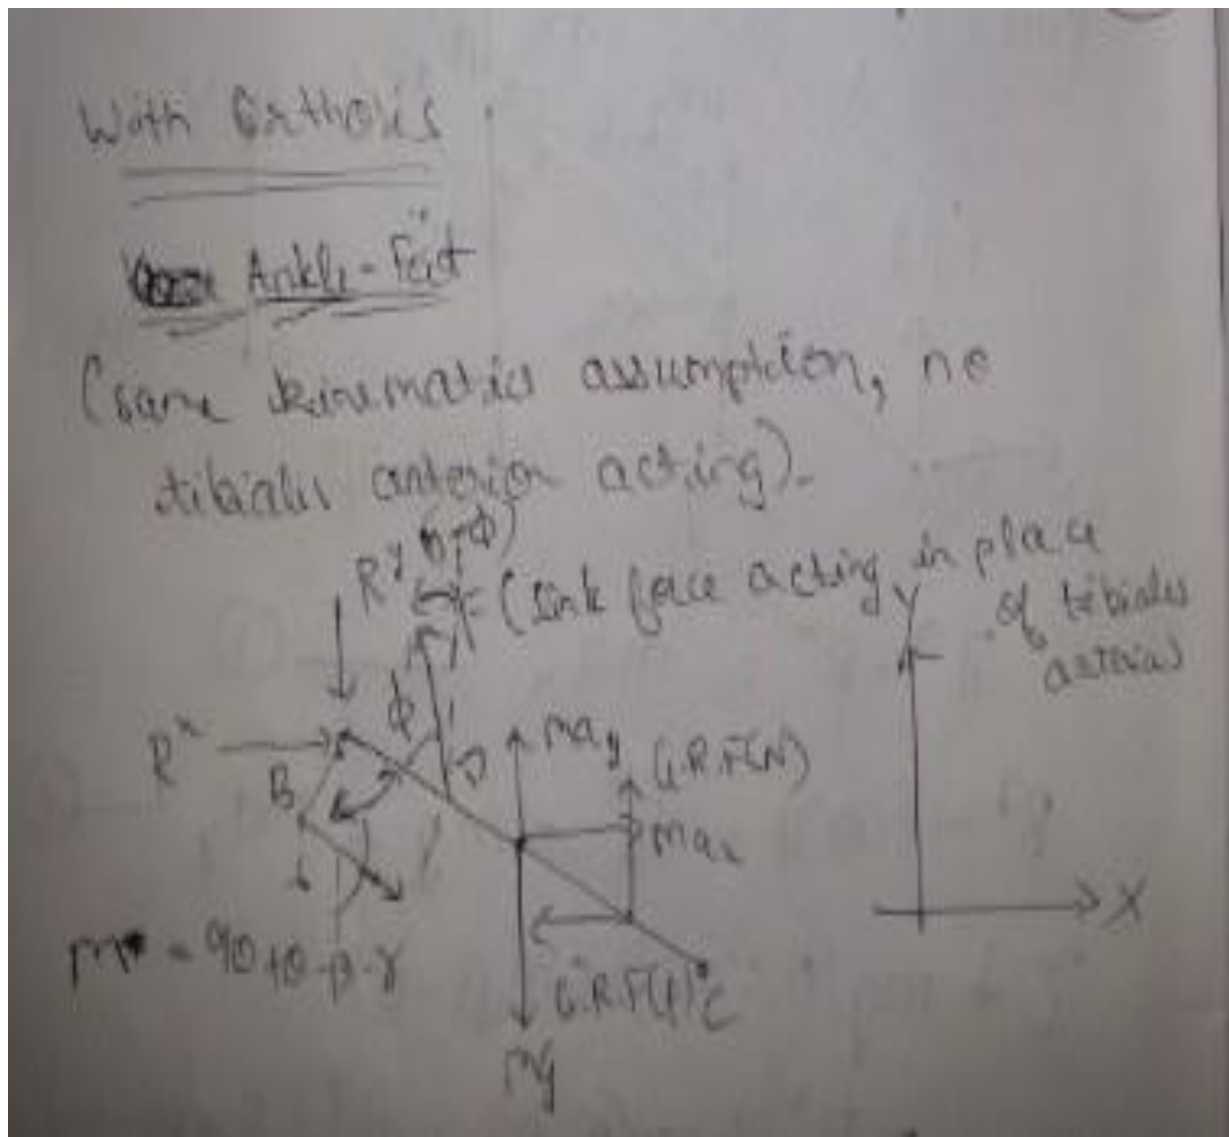 With Orthosis
Ankle-Foot
(same kinematics assumption, no
tibialis anterior acting).
R^y
F (link force acting in place
of tibialis
Y
φ
R^x
B
D
ma_y
G.R.F(N)
ma_x
X
= 90+θ-β-γ
G.R.F(f)
C
mg